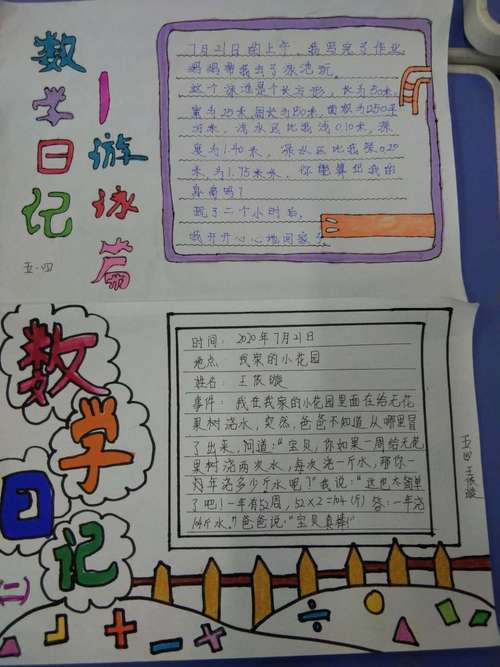 数学日记
—游泳篇
五.四
7月21日的上午，我写完了作业，
妈妈带我去了泳池玩。
这个泳池是个长方形，长为50米，
宽为25米，周长为150米，面积为1250平
方米，浅水区比我浅0.10米，深
度为1.40米，深水区比我深0.25
米，为1.75米，你能算出我的
身高吗？
玩了二个小时后，
我开开心心地回家了。
数学日记
(二)
时间：2020年7月21日
地点：我家的小花园
姓名：王依璇
事件：我在我家的小花园里面在给无花
果树浇水，突然，爸爸不知道从哪里冒
了出来，问道：“宝贝，你如果一周给无花
果树浇两次水，每次浇一斤水，那你一
年浇多少斤水呢？”我说：“这也太简单
了吧！一年有52周，52×2=104(斤) 答：一年浇
104斤水。”爸爸说：“宝贝真棒！”
五.四 王依璇